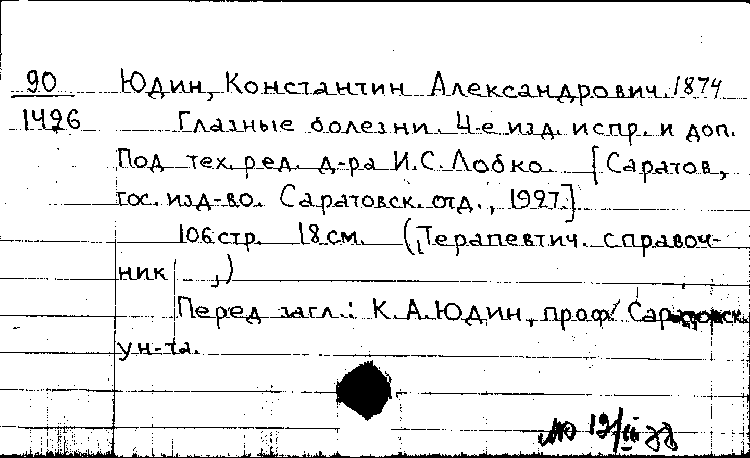 90 Юдин, Константин Александрович. 1874
1426 Глазные болезни. 4-е изд. испр. и доп.
Под тех. ред. д-ра И.С. Лобко. [Саратов,
гос. изд-во. Саратовск. отд., 1927.]
106 стр. 18 см. („Терапевтич. справоч-
ник „)
Перед загл.: К.А. Юдин, проф. Саратовск.
ун-та.
19/III